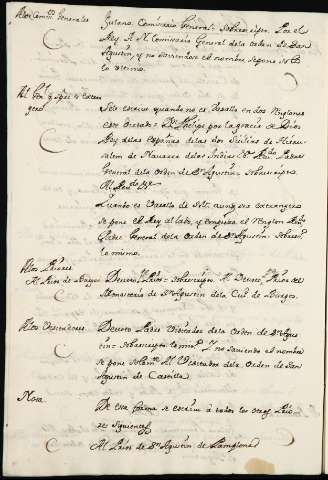 A los Comis.os Generales
fulano Comisario General: Sobrescripto Por el
Rey. A N. Comisario General dela orden de San
Agustin, y no saviendose el nombre se pone
lo vltimo.
Al
Sele escriue quando no es Vasallo en dos Renglones
Dn Phelipe por la gracia de Dios
Rey delas Españas delas dos Sicilias de Hieru-
salem de Nauarra delas Indias &a Padre
General dela Orden de Sn Agustin. Sobrescripto
Quando es Vasallo de S.M. aunq sea extrangero
se pone el Rey al lado, y empieza el Renglon
Padre General dela Orden de Sn Agustin. Sobres.to
lo mismo.
A los Priores
Al Prior de Burgos
Deuoto Prior. Sobrescripto. Al Deuoto Prior del
Monasterio de Sn Agustin dela Ciu.d de Burgos.
A los Visitadores
Deuoto Padre Visitador dela Orden de Sn Agus
tin. Sobrescripto lo mismo. Y no saviendo el nombre
se pone Al Visitador dela Orden de San
Agustin de Castilla.
Nota
De esta forma se escriue à todos los otros Prio
res siguientes
Al Prior de Sn Agustin de Pamplona